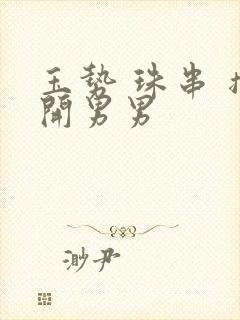 玉势 珠串
開男男
渺尹